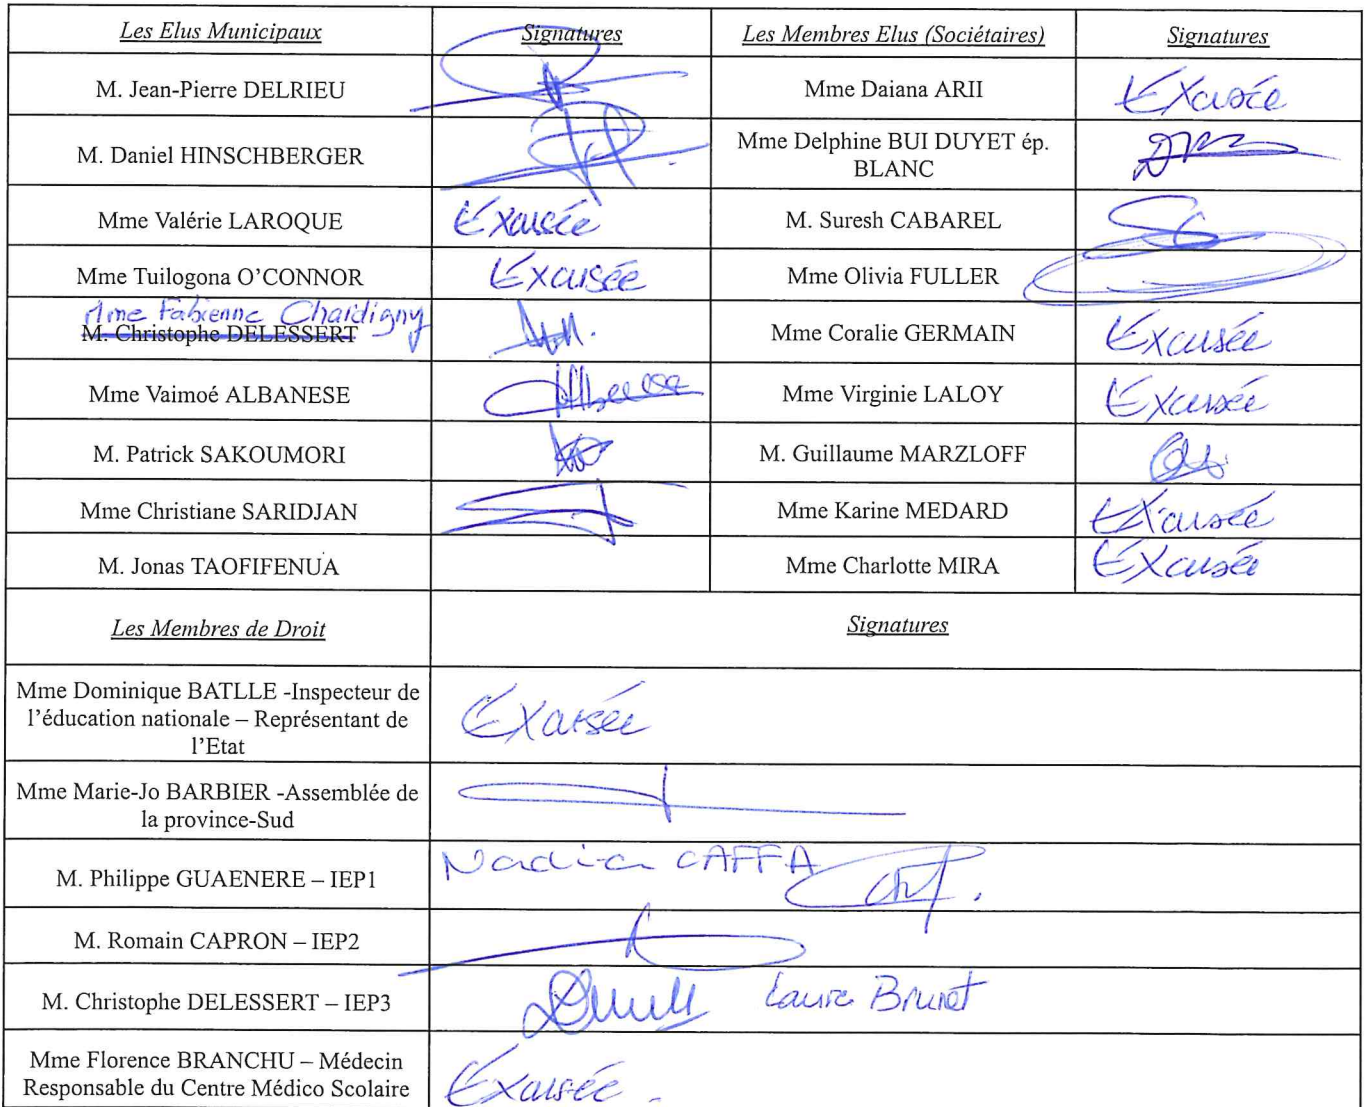 Les Elus Municipaux Signatures Les Membres Elus (Sociétaires) Signatures
M. Jean-Pierre DELRIEU Mme Daiana ARII Excusée
M. Daniel HINSCHBERGER Mme Delphine BUI DUYET ép.
BLANC
Mme Valérie LAROQUE Excusée M. Suresh CABAREL
Mme Tuilogona O'CONNOR Excusée Mme Olivia FULLER
Mme Fabienne Chardigny
M. Christophe DELESSERT Mme Coralie GERMAIN Excusée
Mme Vaimoé ALBANESE Mme Virginie LALOY Excusée
M. Patrick SAKOUMORI M. Guillaume MARZLOFF
Mme Christiane SARIDJAN Mme Karine MEDARD Excusée
M. Jonas TAOFIFENUA Mme Charlotte MIRA Excusée
Les Membres de Droit Signatures
Mme Dominique BATLLE -Inspecteur de
l'éducation nationale – Représentant de
l'Etat
Excusée
Mme Marie-Jo BARBIER -Assemblée de
la province-Sud
M. Philippe GUAENERE – IEP1 Nadia CAFFA
M. Romain CAPRON – IEP2
M. Christophe DELESSERT – IEP3 Laure Brunet
Mme Florence BRANCHU – Médecin
Responsable du Centre Médico Scolaire
Excusée.